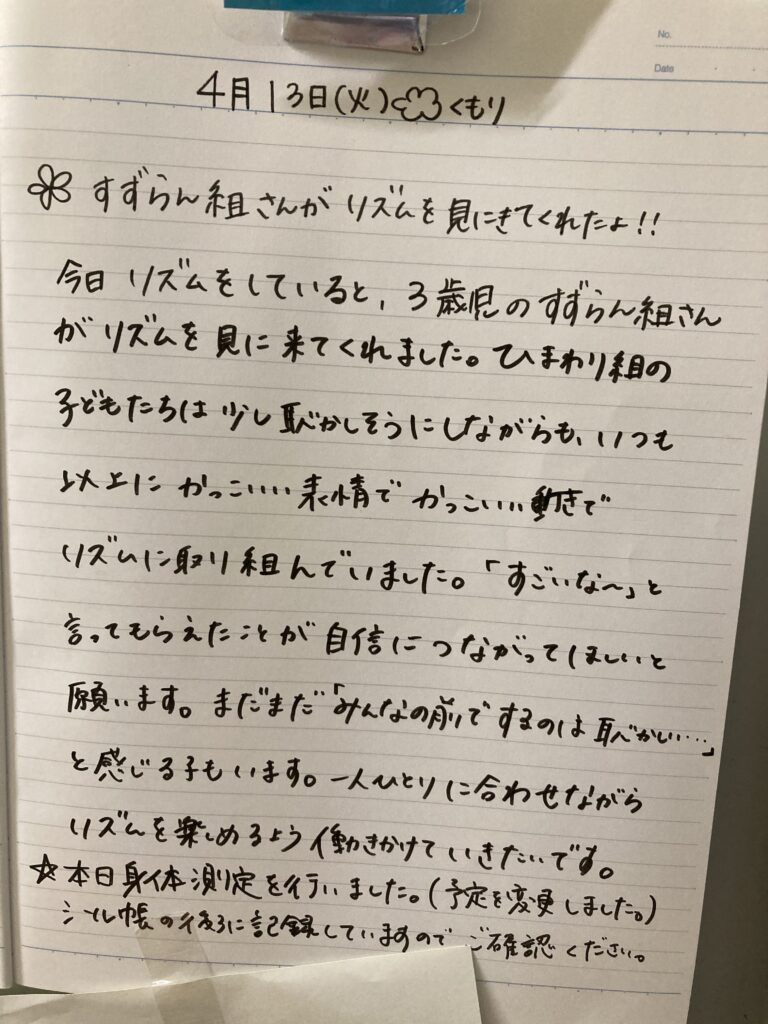 No.
Date
4月13日(火) くもり
すずらん組さんがリズムを見にきてくれたよ!!
今日リズムをしていると、3歳児のすずらん組さん
がリズムを見に来てくれました。ひまわり組の
子どもたちは少し恥かしそうにしながらも、いつも
以上にかっこいい表情でかっこいい動きで
リズムに取り組んでいました。「すごいな〜」と
言ってもらえたことが自信につながってほしいと
願います。まだまだ「みんなの前でするのは恥かしい……」
と感じる子もいます。一人ひとりに合わせながら
リズムを楽しめるよう働きかけていきたいです。
☆本日身体測定を行いました。(予定を変更しました。)
シール帳の後ろに記録していますのでご確認ください。